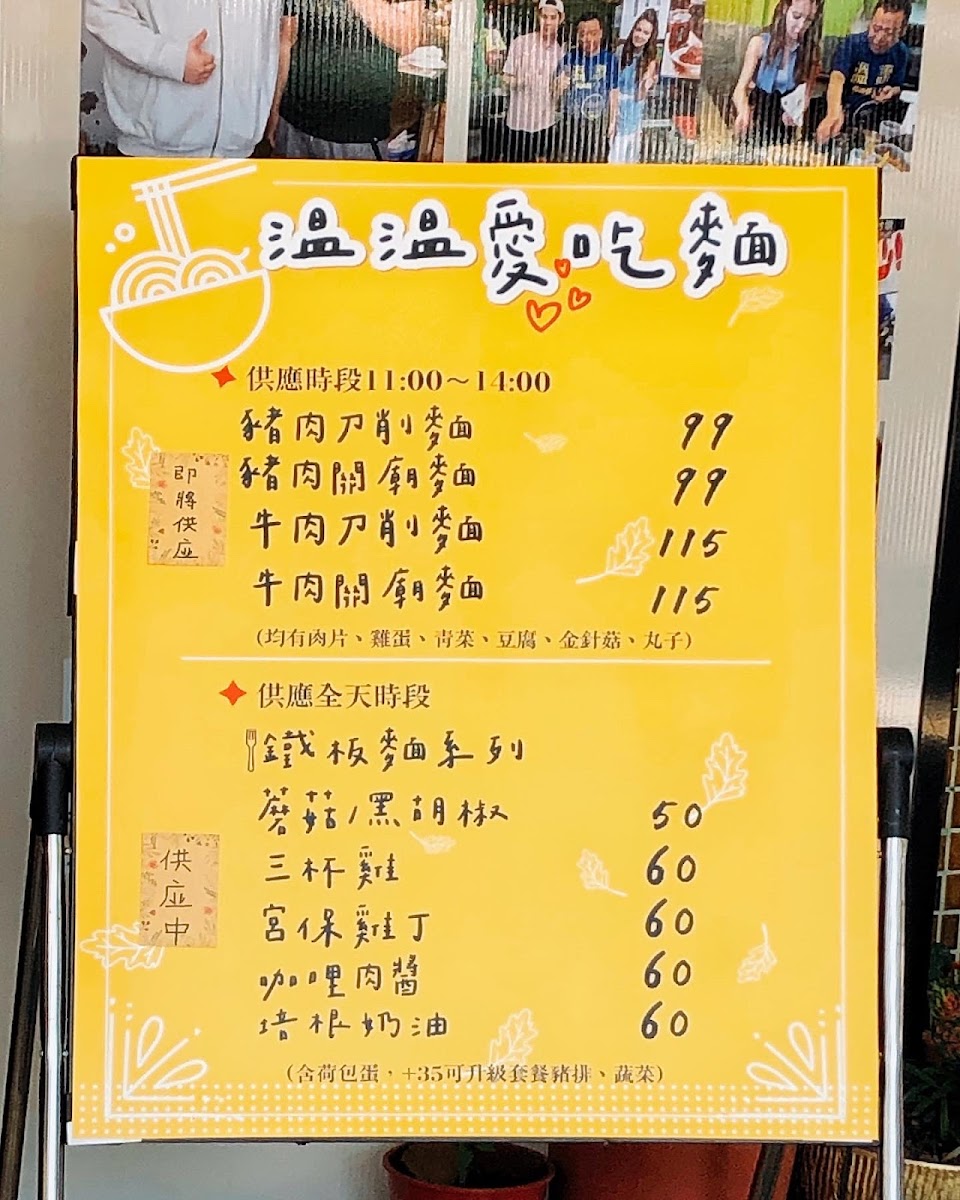 溫溫愛吃麵
供應時段11:00～14:00
豬肉刀削麵 99
豬肉關廟麵 99
即將供应
牛肉刀削麵 115
牛肉關廟麵 115
(均有肉片、雞蛋、青菜、豆腐、金針菇、丸子)
供應全天時段
鐵板麵系列
蘑菇/黑胡椒 50
三杯雞 60
供应中
宮保雞丁 60
咖哩肉醬 60
培根奶油 60
(含荷包蛋，+35可升級套餐豬排、蔬菜)